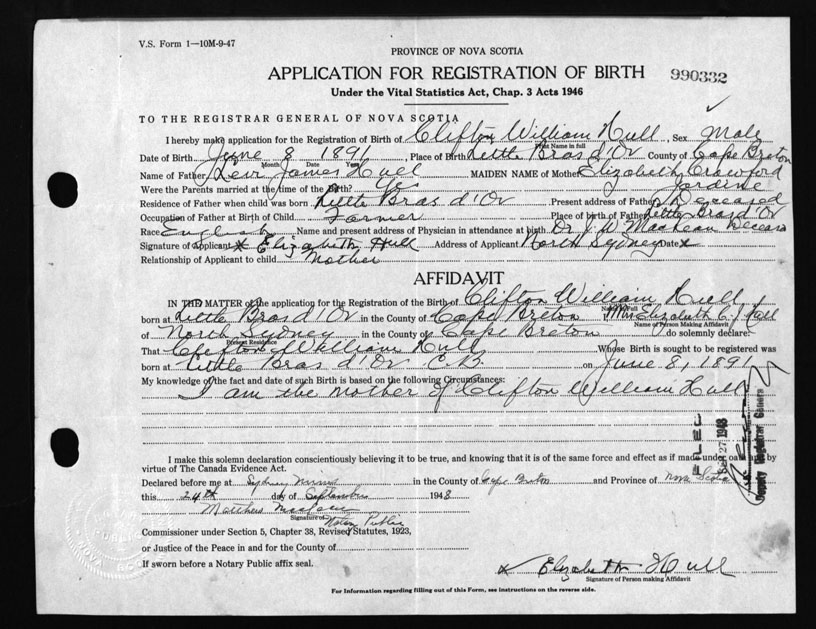 V.S. Form 1—10M-9-47
PROVINCE OF NOVA SCOTIA
APPLICATION FOR REGISTRATION OF BIRTH
990332
Under the Vital Statistics Act, Chap. 3 Acts 1946
TO THE REGISTRAR GENERAL OF NOVA SCOTIA
I hereby make application for the Registration of Birth of Clifton William Hull, Sex Male
Print Name in full
Date of Birth June 8 1891, Place of Birth Little Bras d'Or County of Cape Breton
Month Date Year
Name of Father Levi James Hull MAIDEN NAME of Mother Elizabeth Crawford Jardine
Were the Parents married at the time of the Birth? Yes
Residence of Father when child was born Little Bras d'Or Present address of Father Deceased
Occupation of Father at Birth of Child Farmer Place of birth of Father Little Bras d'Or
Race English Name and present address of Physician in attendance at birth Dr J. W. MacLean Deceased
Signature of Applicant x Elizabeth Hull Address of Applicant North Sydney Date x
Relationship of Applicant to child Mother
AFFIDAVIT
IN THE MATTER of the application for the Registration of the Birth of Clifton William Hull
Name in Full
born at Little Bras d'Or in the County of Cape Breton I Mrs Elizabeth C. J. Hull
Name of Person Making Affidavit
of North Sydney in the County of Cape Breton do solemnly declare:
Present Residence
That Clifton William Hull Whose Birth is sought to be registered was
born at Little Bras d'Or C.B. on June 8, 1891
My knowledge of the fact and date of such Birth is based on the following Circumstances:
I am the mother of Clifton William Hull
FILED
SEP 27 1948
Deputy Registrar General
I make this solemn declaration conscientiously believing it to be true, and knowing that it is of the same force and effect as if made under oath and by
virtue of The Canada Evidence Act.
Declared before me at Sydney Mines in the County of Cape Breton and Province of Nova Scotia
this 24th day of September 1948
Matthew
Signature of Notary Public
Commissioner under Section 5, Chapter 38, Revised Statutes, 1923,
or Justice of the Peace in and for the County of
If sworn before a Notary Public affix seal.
x Elizabeth Hull
Signature of Person making Affidavit
For Information regarding filling out of this Form, see instructions on the reverse side.